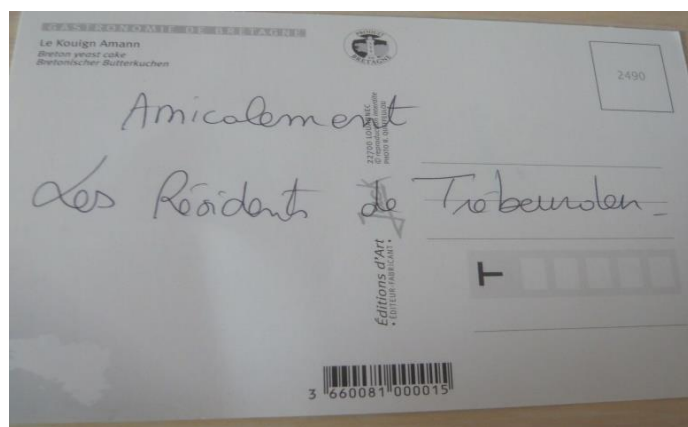 GASTRONOMIE DE BRETAGNE
Le Kouign Amann
Breton yeast cake
Bretonischer Butterkuchen
BRETAGNE
2490
Amicalement
Les Résidents de Trébeurden -
22700 LOUANNEC
© reproduction interdite
Éditions d'Art
• ÉDITEUR-FABRICANT •
T
3 660081 000015